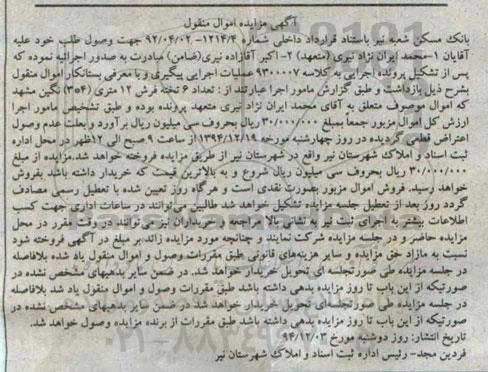 آگهی مزایده اموال منقول
بانک مسکن شعبه نیر باستناد قرارداد داخلی شماره ۱۲۱۴/۴-۹۲/۰۴/۰۲ جهت وصول طلب خود علیه
آقایان ۱-محمد ایران نژاد نیری (متعهد) ۲- اکبر آقازاده نیری(ضامن) مبادرت به صدور اجرائیه نموده که
پس از تشکیل پرونده اجرایی به کلاسه ۹۳۰۰۰۰۷ عملیات اجرایی پیگیری و با معرفی بستانکار اموال منقول
بشرح ذیل بازداشت و طبق گزارش مامور اجرا عبارتند از : تعداد ۶ تخته فرش ۱۲ متری (۴*۳) نگین مشهد
که اموال موصوف متعلق به آقای محمد ایران نژاد نیری متعهد پرونده بوده و طبق تشخیص مامور اجرا
ارزش کل اموال مزبور جمعاً بمبلغ ۳۰/۰۰۰/۰۰۰ ریال بحروف سی میلیون ریال برآورد و بعلت عدم وصول
اعتراض قطعی گردیده در روز چهارشنبه مورخه ۱۳۹۴/۱۲/۱۹ از ساعت ۹ صبح الی ۱۲ظهر در محل اداره
ثبت اسناد و املاک شهرستان نیر واقع در شهرستان نیر از طریق مزایده فروخته خواهد شد.مزایده از مبلغ
۳۰/۰۰۰/۰۰۰ ریال بحروف سی میلیون ریال شروع و به بالاترین قیمت که خریدار داشته باشد بفروش
خواهد رسید. فروش اموال مزبور بصورت نقدی است و هرگاه روز تعیین شده با تعطیل رسمی مصادف
گردد روز بعد از تعطیل جلسه مزایده تشکیل خواهد شد طالبین می‌توانند در ساعات اداری جهت کسب
اطلاعات بیشتر به اجرای ثبت نیر به نشانی بالا مراجعه و خریداران نیز می‌توانند در وقت مقرر در محل
مزایده حاضر و در جلسه مزایده شرکت نمایند و چنانچه مورد مزایده زائد بر مبلغ در آگهی فروخته شود
نسبت به مازاد حق مزایده و سایر هزینه‌های قانونی طبق مقررات وصول و اموال منقول یاد شده بلافاصله
در جلسه مزایده طی صورتجلسه‌ای تحویل خریدار خواهد شد. در ضمن سایر بدهیهای مشخص نشده در
صورتیکه از این باب تا روز مزایده بدهی داشته باشد طبق مقررات وصول و اموال منقول یاد شد بلافاصله
در جلسه مزایده طی صورتجلسه‌ای تحویل خریدار خواهد شد در ضمن سایر بدهیهای مشخص نشده در
صورتیکه از این باب تا روز مزایده بدهی داشته باشد طبق مقررات از برنده مزایده وصول خواهد شد.
تاریخ انتشار: روز دوشنبه مورخ ۹۴/۱۲/۰۳
فردین مجد- رئیس اداره ثبت اسناد و املاک شهرستان نیر